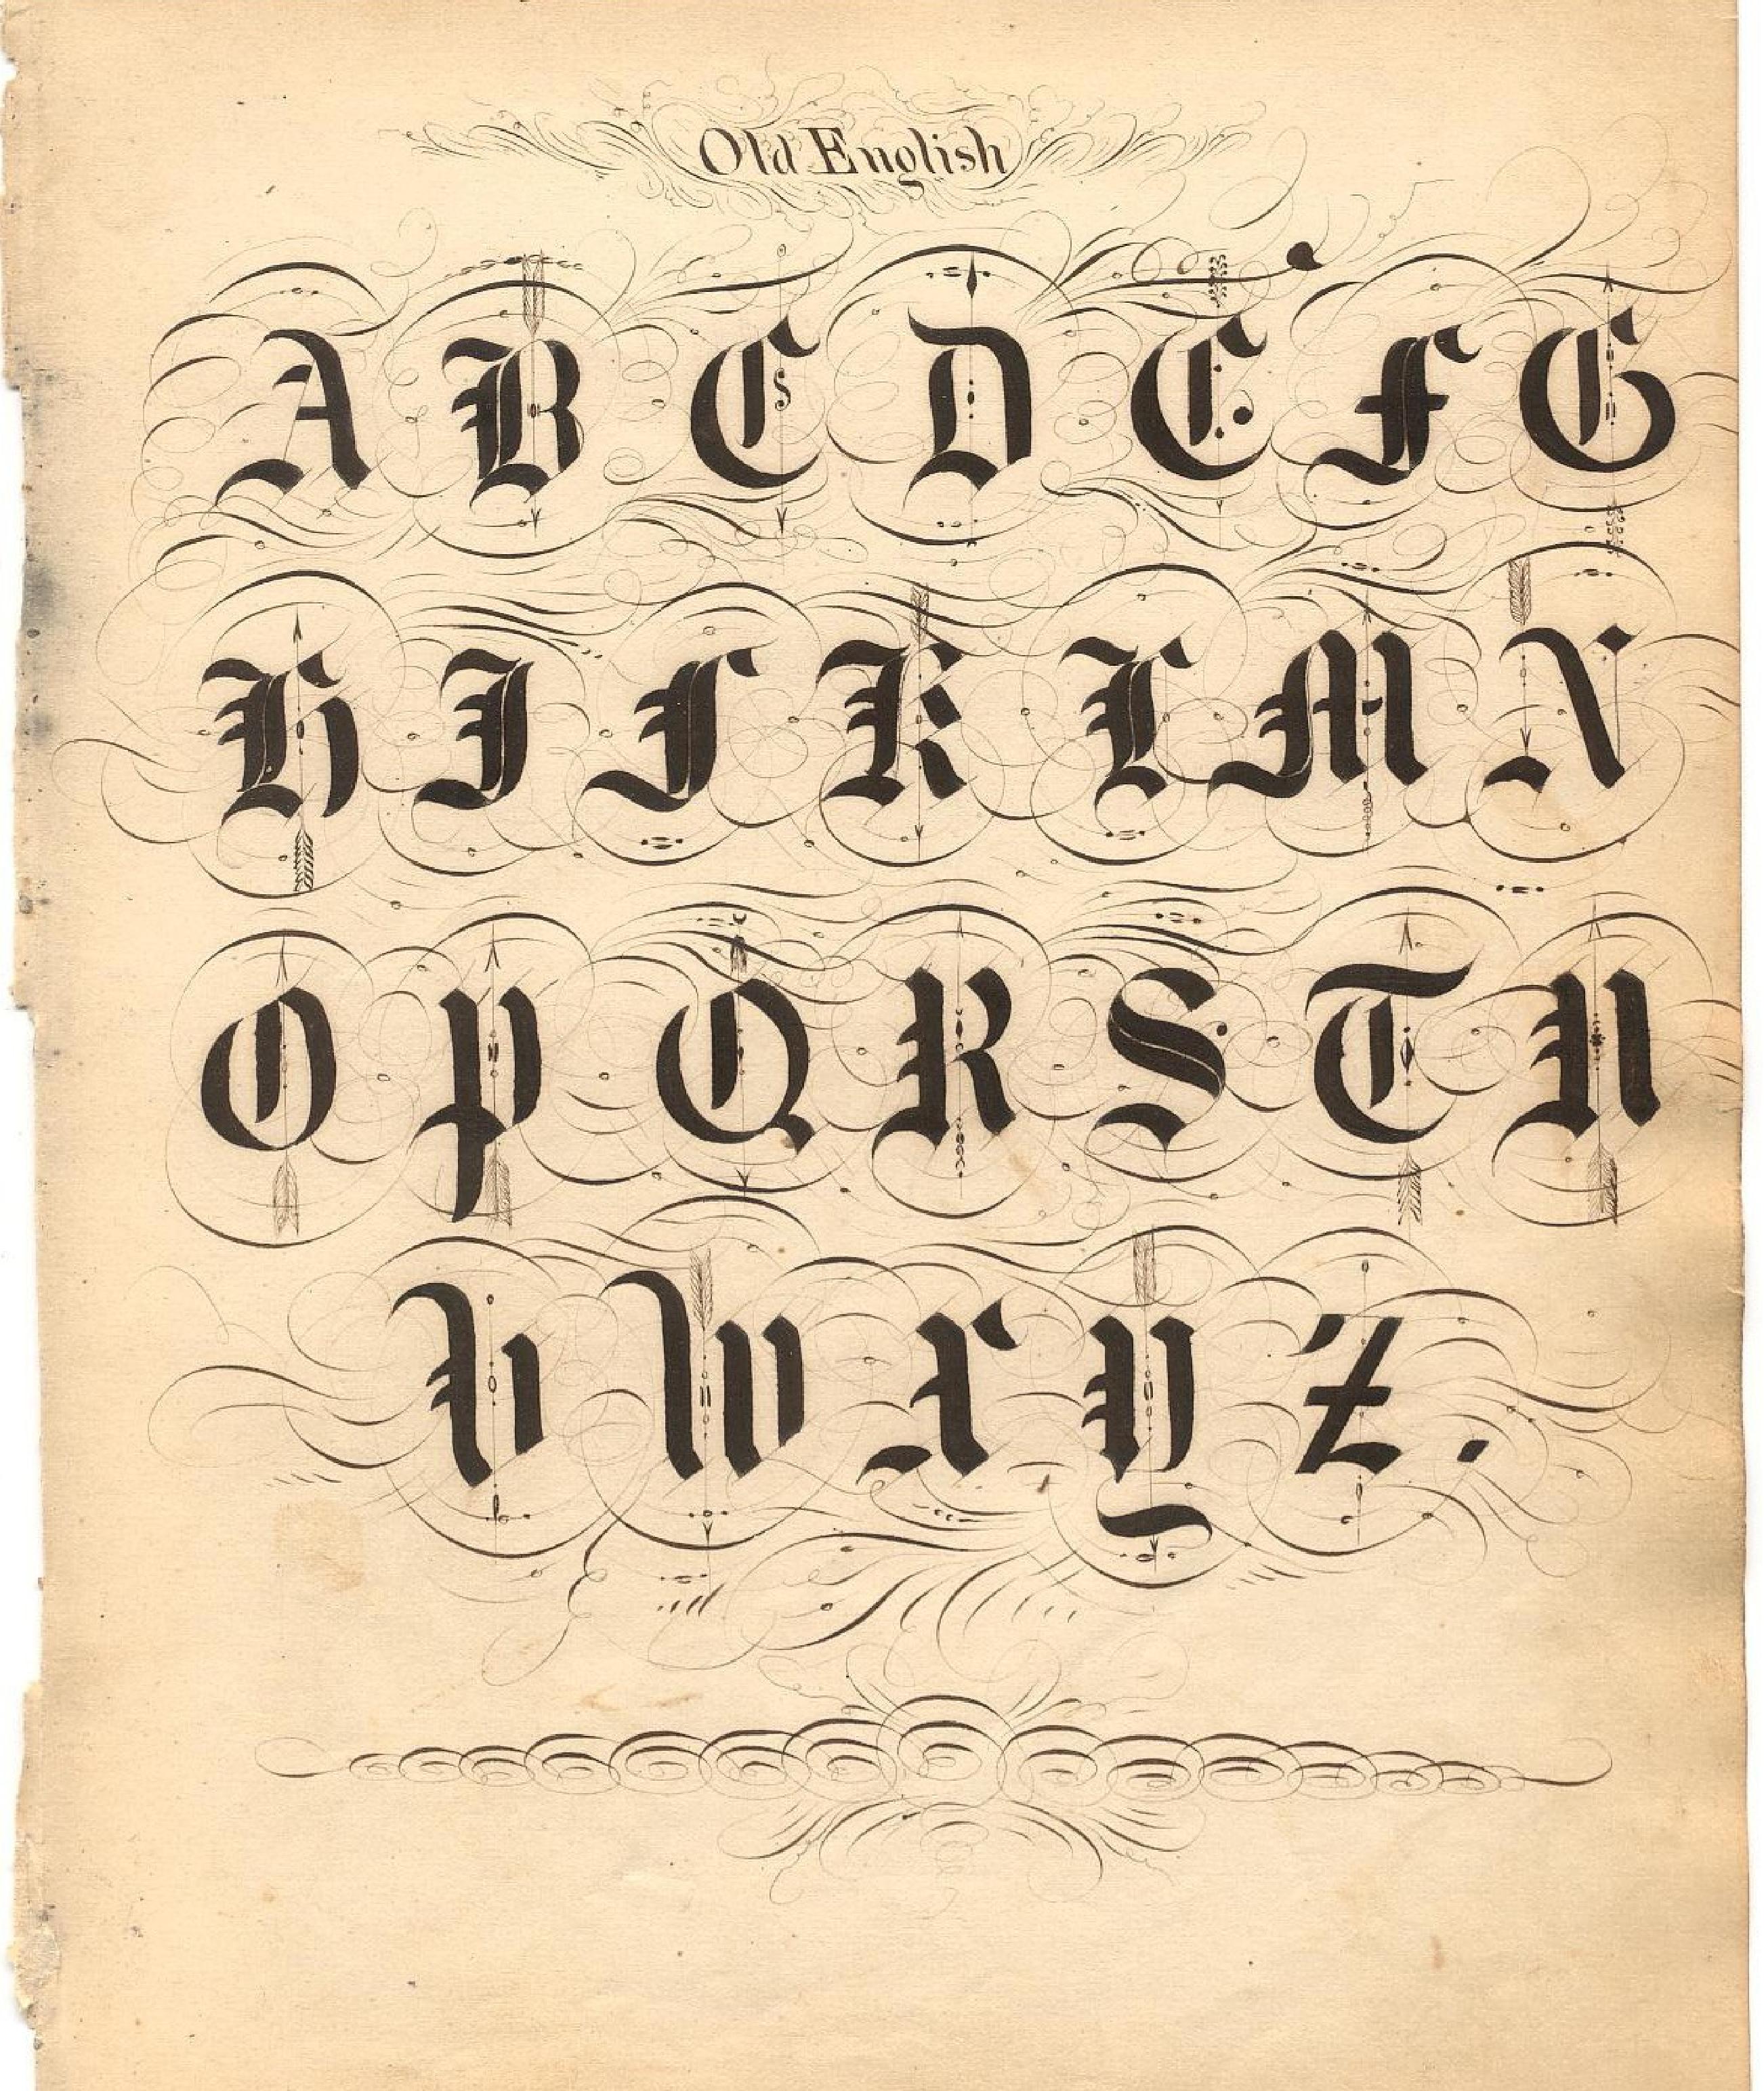 Old English
A B C D E F G
H I J K L M N
O P Q R S T U
V W X Y Z.